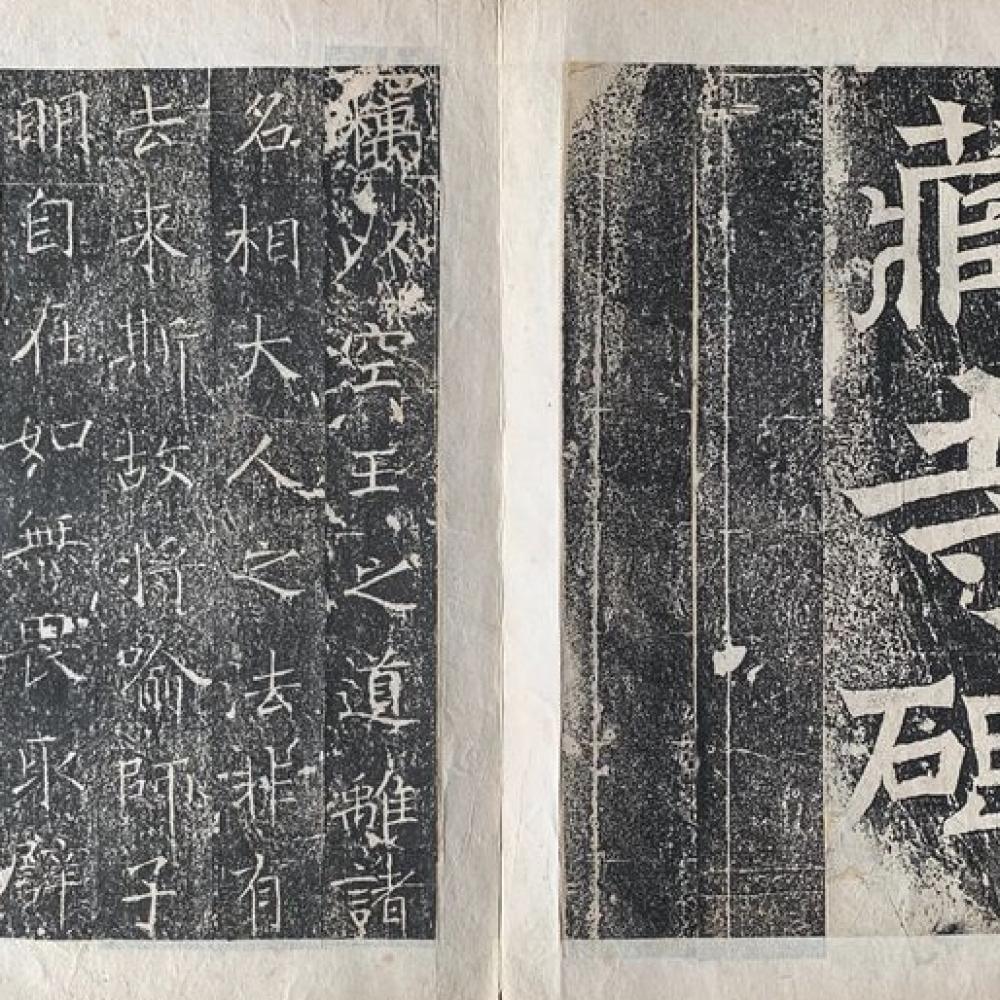 藏寺碑
竊以空王之道離諸
名相大人之法非有
去來斯故將喻師子
明自在如無畏取譬